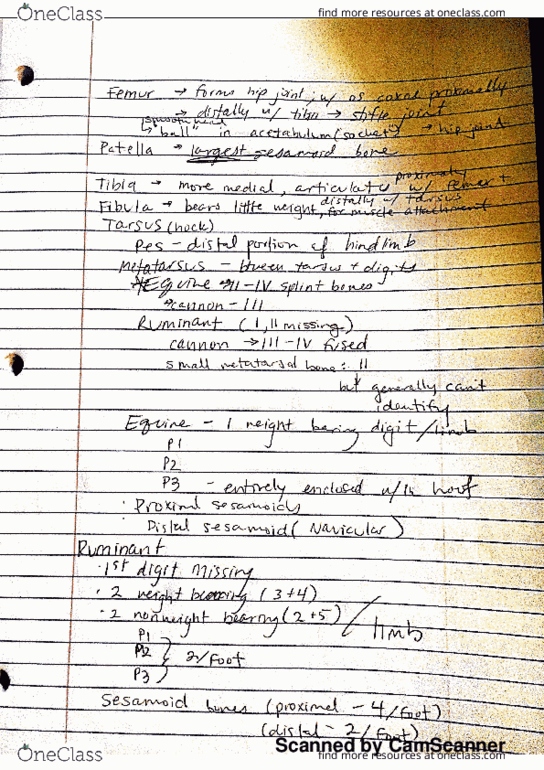 OneClass
find more resources at oneclass.com
Femur → forms hip joint, w/ os coxal proximally
→ distally w/ tibia → stifle joint
↳ "ball" in acetabulum (socket) → hip joint
Patella → largest sesamoid bone
proximally
Tibia → more medial, articulates w/ femur +
distally w/ tarsus
Fibula → bears little weight, for muscle attachment
Tarsus (hock)
Pes - distal portion of hindlimb
Metatarsus - btween tarsus + digits
Equine II-IV splint bones
cannon - III
Ruminant (I, II missing)
cannon → III-IV fused
small metatarsal bone: II
but generally can't
identify
Equine - 1 weight bearing digit/limb
P1
P2
P3 - entirely enclosed w/in hoof
· Proximal sesamoids
Distal sesamoid (Navicular)
Ruminant
· 1st digit missing
· 2 weight bearing (3+4)
· 2 nonweight bearing (2+5) / limb
P1
P2 } 2/foot
P3
Sesamoid bones (proximal - 4/foot)
(distal - 2/foot)
Scanned by CamScanner
OneClass
find more resources at oneclass.com